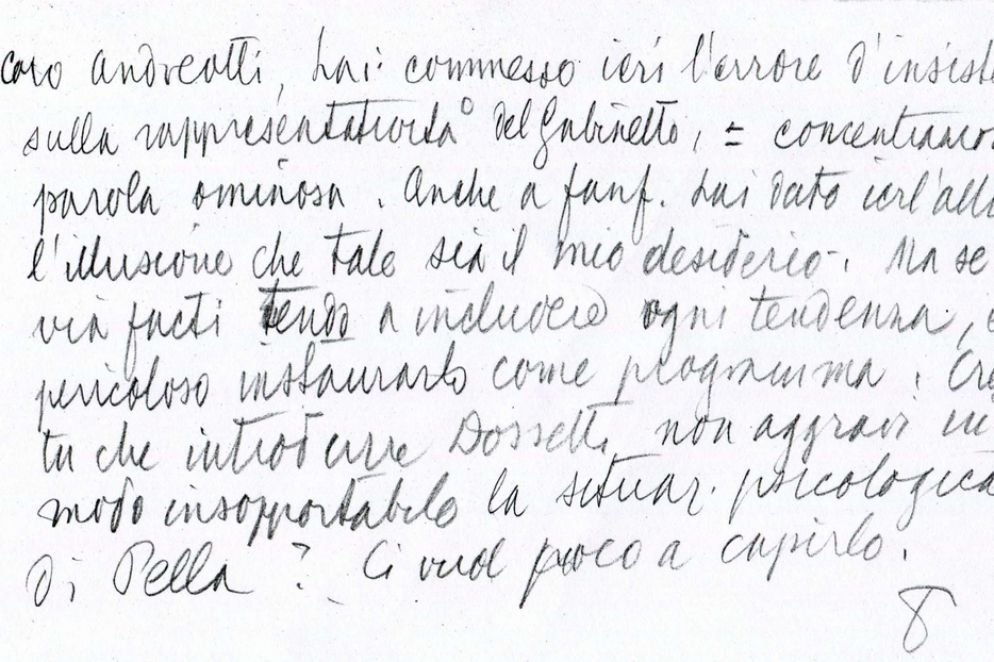 caro Andreotti, hai commesso ieri l'errore d'insiste
sulla rappresentatività del Gabinetto, = concentriamo
parola ominosa. Anche a Fanf. hai dato ier l'alt
l'illusione che tale sia il mio desiderio. Ma se
via facti tendo a includere ogni tendenza,
pericoloso instaurarlo come programma. Cre
tu che introdurre Dossetti non aggravi in
modo insopportabile la situaz. psicologica
di Pella? Ci vuol poco a capirlo.